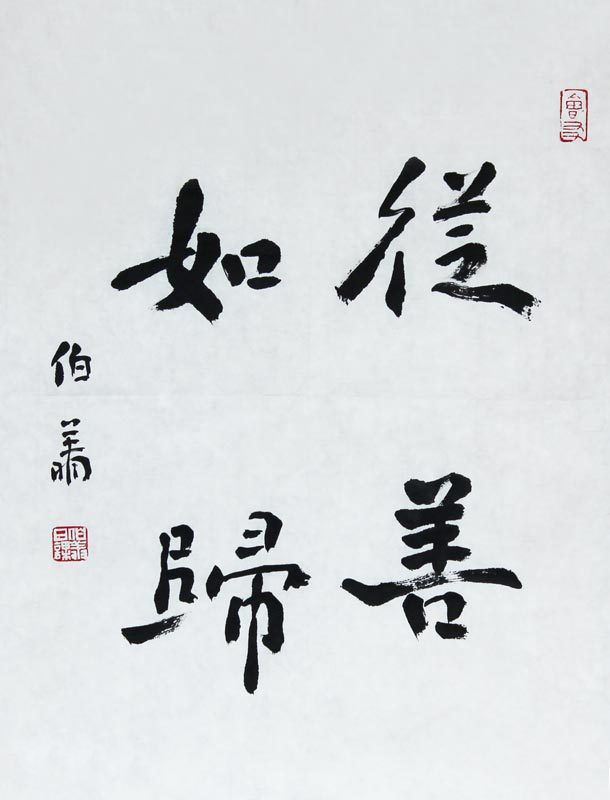 從善
如歸
伯翏